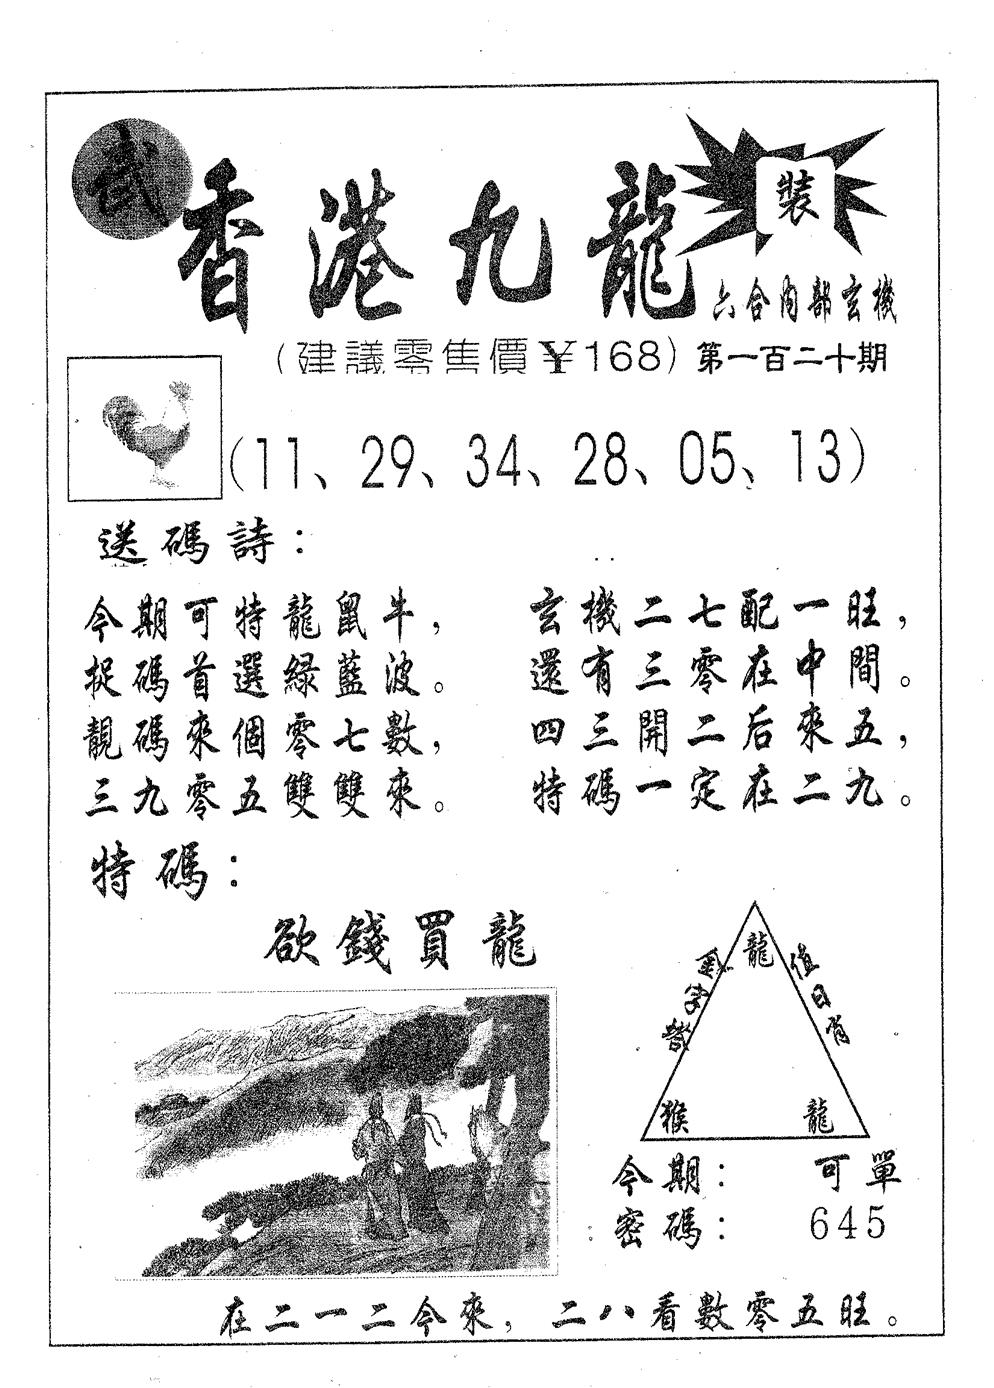 武
香港九龍
裝
六合內部玄機
(建議零售價¥168)第一百二十期
(11、29、34、28、05、13)
送碼詩：
今期可特龍鼠牛，
捉碼首選綠藍波。
靚碼來個零七數，
三九零五雙雙來。
玄機二七配一旺，
還有三零在中間。
四三開二后來五，
特碼一定在二九。
特碼：
欲錢買龍
龍
值日肖
猴
龍
今期：可單
密碼：645
在二一二今來，二八看數零五旺。